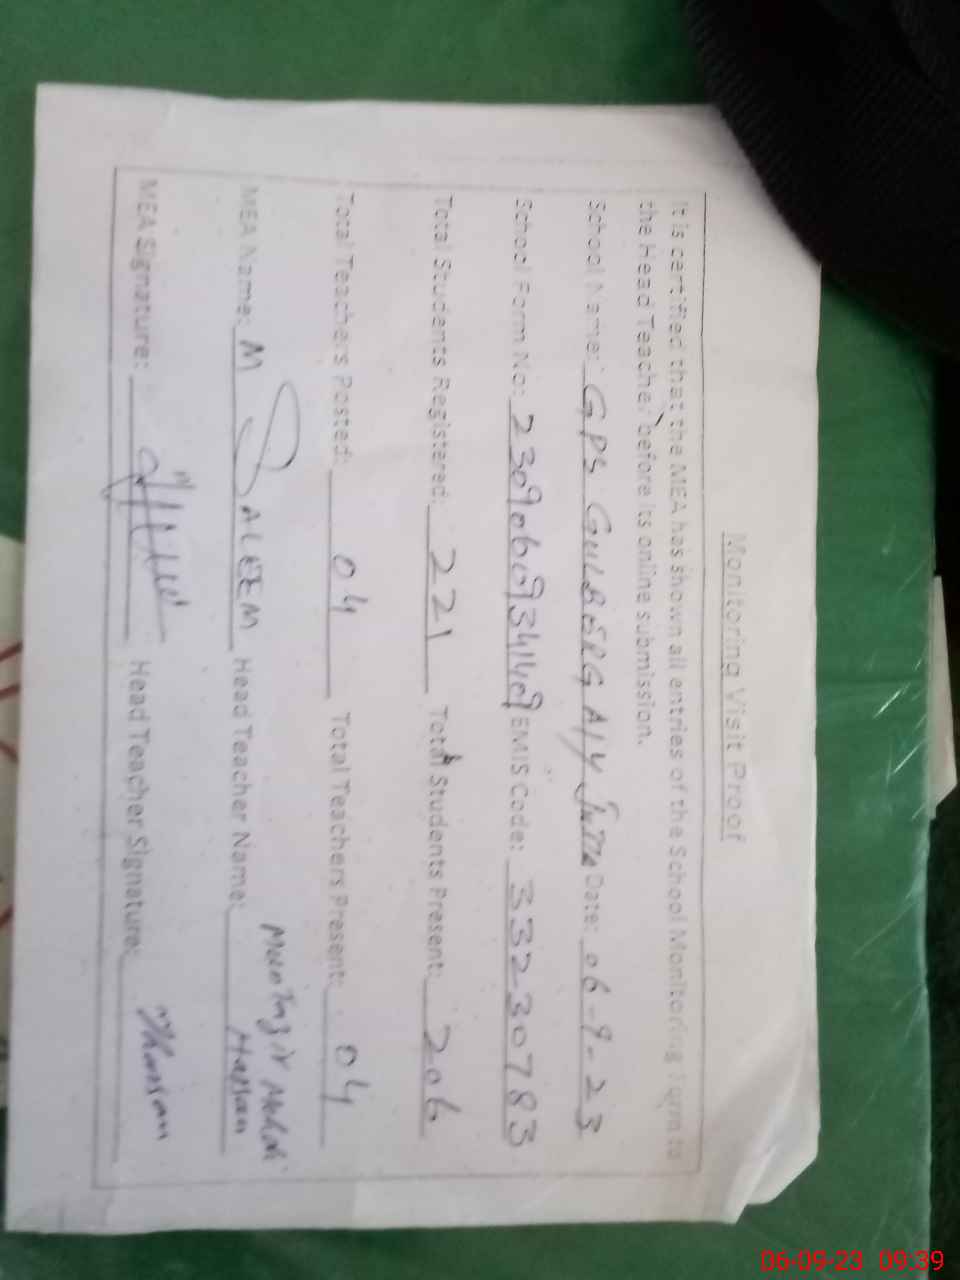 Monitoring Visit Proof
It is certified that the MEA has shown all entries of the School Monitoring Form to
the Head Teacher before its online submission.
School Name: GPS GULBERG Date: 06-9-23
School Form No: 2309060934149 EMIS Code: 33230783
Total Students Registered: 221 Total Students Present: 206
Total Teachers Posted: 04 Total Teachers Present: 04
MEA Name: M SALEEM Head Teacher Name: Muntazir Mehdi
Hassan
MEA Signature: Head Teacher Signature:
06-09-23 09:39